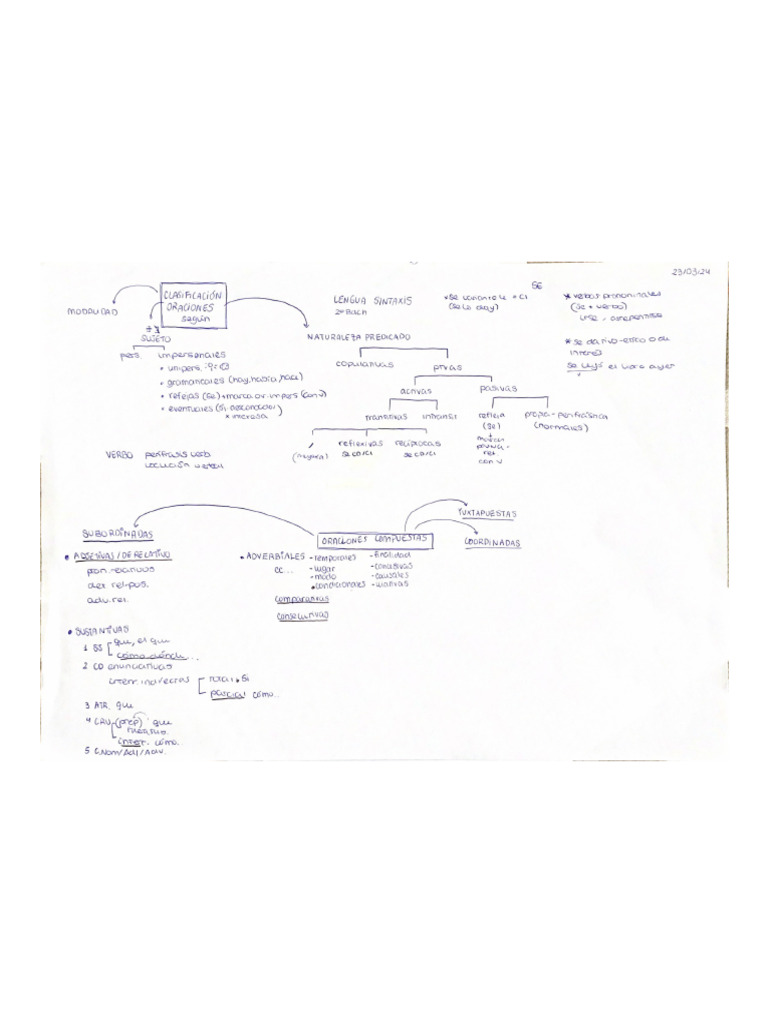 23/03/24
CLASIFICACIÓN
ORACIONES
según
MODALIDAD
LENGUA SINTAXIS
2º Bach
SE
* se variante le + CI
(se lo doy)
* verbos pronominales
(se + verbo)
irse, arrepentirse
SUJETO
NATURALEZA PREDICADO
* se dativo-ético o de
interés
se leyó el libro ayer
pers. impersonales
• unipers.
• gramaticales (hay, había, hace)
• reflejas (se)
• eventuales (si desconocido)
x interesa
copulativas
pvas
activas
pasivas
transitivas
intransit
refleja
(se)
propia - perifrástica
(normales)
marca
con v
(mayoría)
reflexivas
se CD/CI
recíprocas
se CD/CI
VERBO perífrasis verb
locución verbal
YUXTAPUESTAS
SUBORDINADAS
ORACIONES COMPUESTAS
COORDINADAS
• ADJETIVAS / DE RELATIVO
pron. relativos
det. rel-pos.
adv. rel.
• ADVERBIALES
CC...
- temporales
- lugar
- modo
• condicionales
- finalidad
- concesivas
- causales
- ilativas
comparativas
consecutivas
• SUSTANTIVAS
1 SS que, el que
cómo dónde...
2 CD enunciativas
interr. indirectas
total, si
parcial cómo...
3 ATR. que
4 CRV (prep) que
interr. cómo.
5 C.Nom/Adj/Adv.